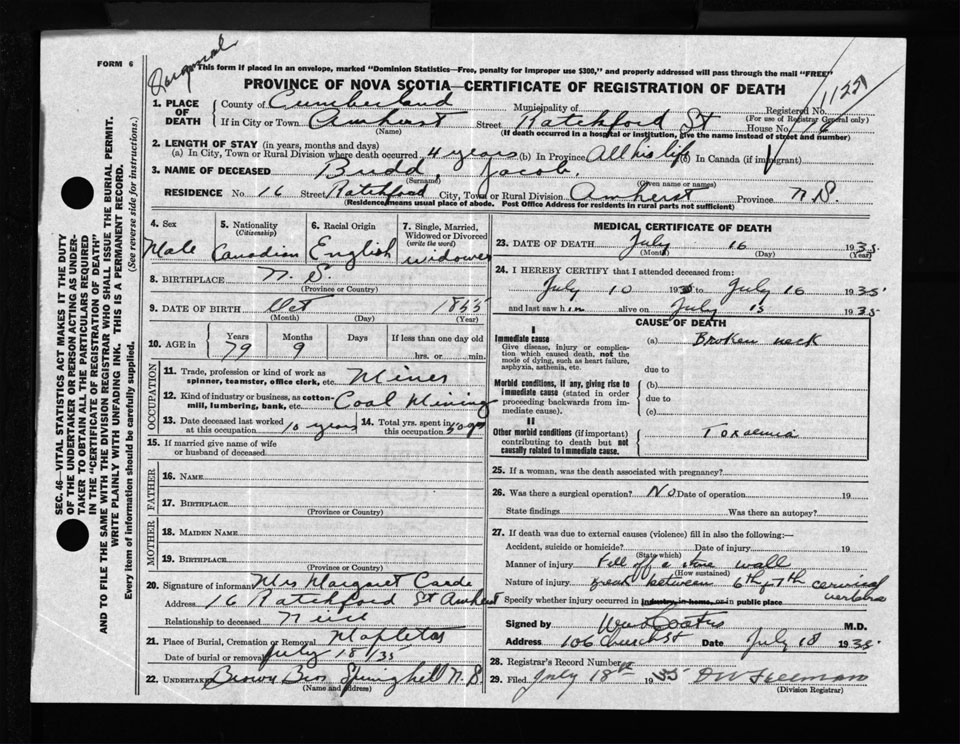 FORM 6
This form if placed in an envelope, marked "Dominion Statistics—Free, penalty for improper use $300," and properly addressed will pass through the mail "FREE"
PROVINCE OF NOVA SCOTIA—CERTIFICATE OF REGISTRATION OF DEATH
SEC. 46—VITAL STATISTICS ACT MAKES IT THE DUTY
OF THE UNDERTAKER OR PERSON ACTING AS UNDER-
TAKER TO OBTAIN ALL THE PARTICULARS REQUIRED
IN THE "CERTIFICATE OF REGISTRATION OF DEATH"
AND TO FILE THE SAME WITH THE DIVISION REGISTRAR WHO SHALL ISSUE THE BURIAL PERMIT.
WRITE PLAINLY WITH UNFADING INK. THIS IS A PERMANENT RECORD.
Every item of information should be carefully supplied. (See reverse side for instructions.)
1. PLACE OF DEATH
County of Cumberland Municipality of Registered No.
(For use of Registrar General only)
If in City or Town Amherst Street Ratchford St House No. 16
(Name) (If death occurred in a hospital or institution, give the name instead of street and number)
2. LENGTH OF STAY (in years, months and days)
(a) In City, Town or Rural Division where death occurred 4 years (b) In Province All his life (c) In Canada (if immigrant)
3. NAME OF DECEASED Budd, Jacob.
(Surname) (Given name or names)
RESIDENCE No. 16 Street Ratchford City, Town or Rural Division Amherst Province N.S.
(Residence means usual place of abode. Post Office Address for residents in rural parts not sufficient)
4. Sex Male
5. Nationality (Citizenship) Canadian
6. Racial Origin English
7. Single, Married, Widowed or Divorced (write the word) widower
8. BIRTHPLACE N.S.
(Province or Country)
9. DATE OF BIRTH Oct 1855
(Month) (Day) (Year)
10. AGE in Years 79 Months 9 Days If less than one day old hrs. or min.
OCCUPATION
11. Trade, profession or kind of work as spinner, teamster, office clerk, etc. Miner
12. Kind of industry or business, as cotton-mill, lumbering, bank, etc. Coal Mining
13. Date deceased last worked at this occupation 10 years
14. Total yrs. spent in this occupation 50 yrs
15. If married give name of wife or husband of deceased
FATHER
16. NAME
17. BIRTHPLACE
(Province or Country)
MOTHER
18. MAIDEN NAME
19. BIRTHPLACE
(Province or Country)
20. Signature of informant Mrs Margaret
Address 16 Ratchford St Amherst
Relationship to deceased Niece
21. Place of Burial, Cremation or Removal Mapleton
Date of burial or removal July 18/35
22. UNDERTAKER Brown Bros Springhill N.S.
(Name and address)
MEDICAL CERTIFICATE OF DEATH
23. DATE OF DEATH July 16 1935
(Month) (Day) (Year)
24. I HEREBY CERTIFY that I attended deceased from:
July 10 193 to July 16 1935
and last saw him alive on July 15 1935
CAUSE OF DEATH
I
Immediate cause
Give disease, injury or complication which caused death, not the mode of dying, such as heart failure, asphyxia, asthenia, etc.
(a) Broken neck
due to
Morbid conditions, if any, giving rise to immediate cause (stated in order proceeding backwards from immediate cause).
(b)
due to
(c)
II
Other morbid conditions (if important) contributing to death but not causally related to immediate cause.
Toxaemia
25. If a woman, was the death associated with pregnancy?
26. Was there a surgical operation? No Date of operation 19
State findings Was there an autopsy?
27. If death was due to external causes (violence) fill in also the following:—
Accident, suicide or homicide? Date of injury 19
(State which)
Manner of injury Fell off a stone wall
(How sustained)
Nature of injury break between 6th & 7th cervical vertebra
Specify whether injury occurred in industry, in home, or in public place
Signed by M.D.
Address 106 Church St Date July 18 1935
28. Registrar's Record Number
29. Filed July 18th 1935 D W Freeman
(Division Registrar)